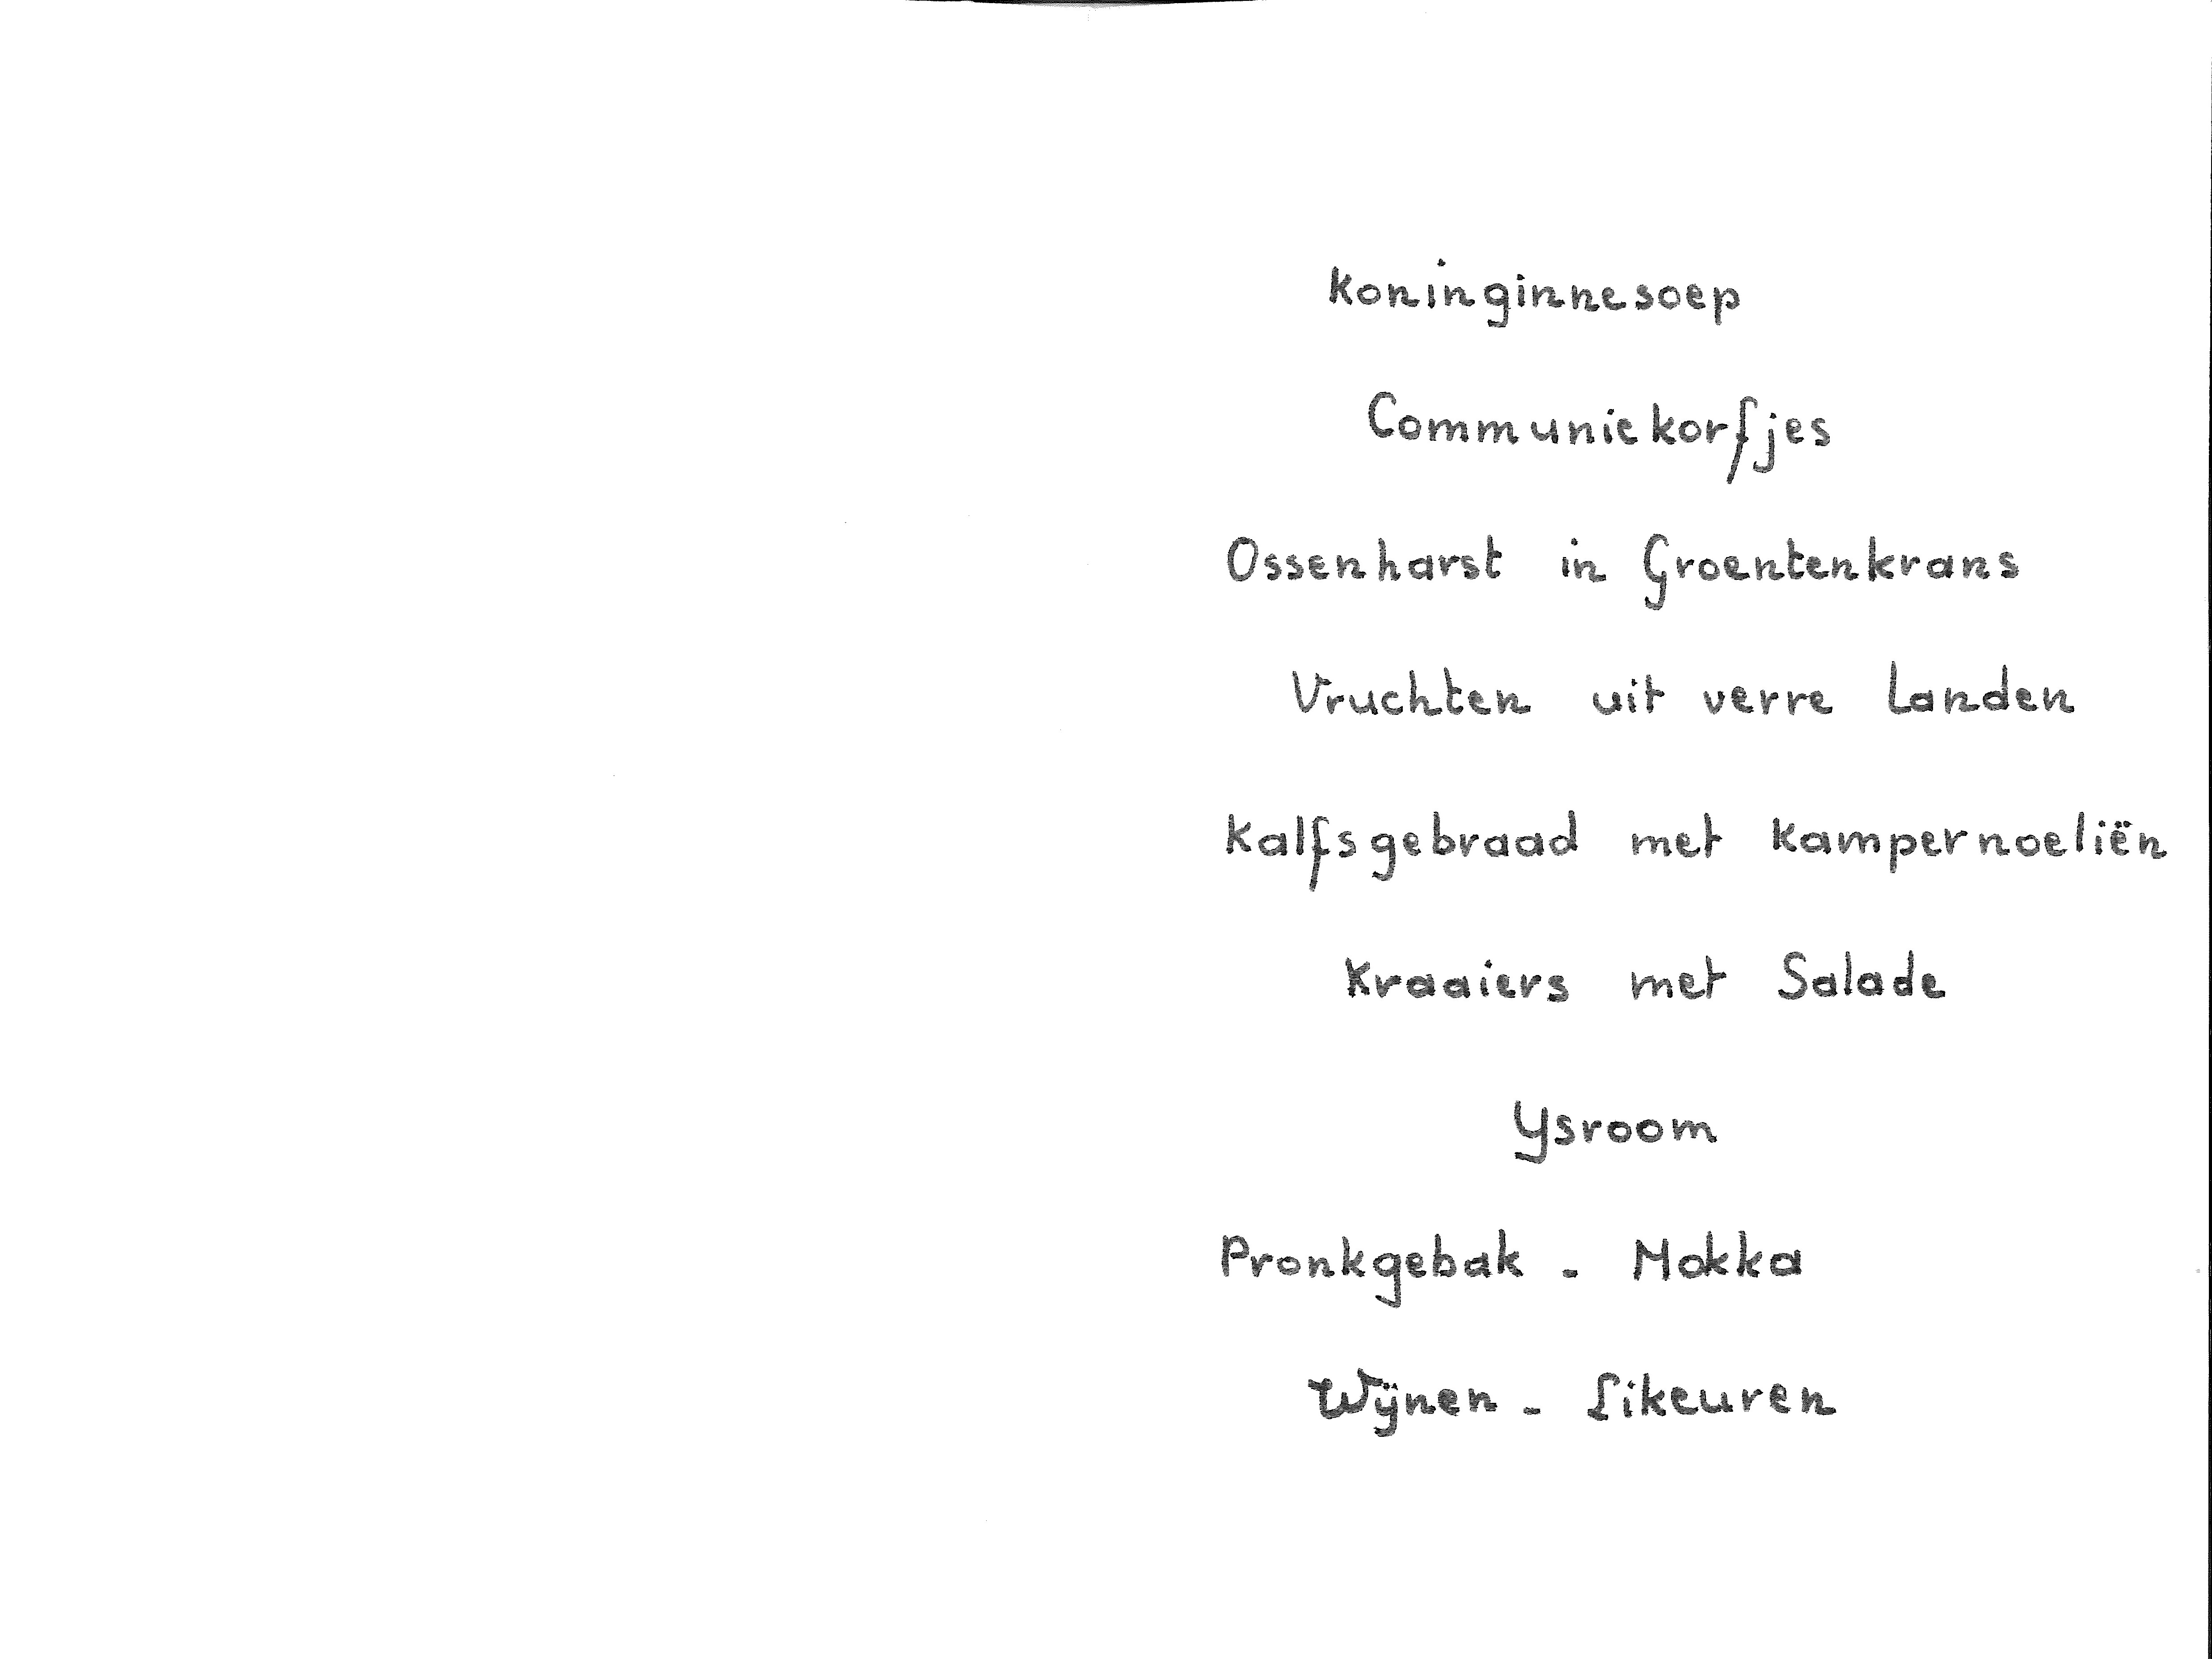 Koninginnesoep
Communiekorfjes
Ossenharst in Groentenkrans
Vruchten uit verre Landen
Kalfsgebraad met Kampernoeliën
Kraaiers met Salade
Ysroom
Pronkgebak - Mokka
Wijnen - Likeuren